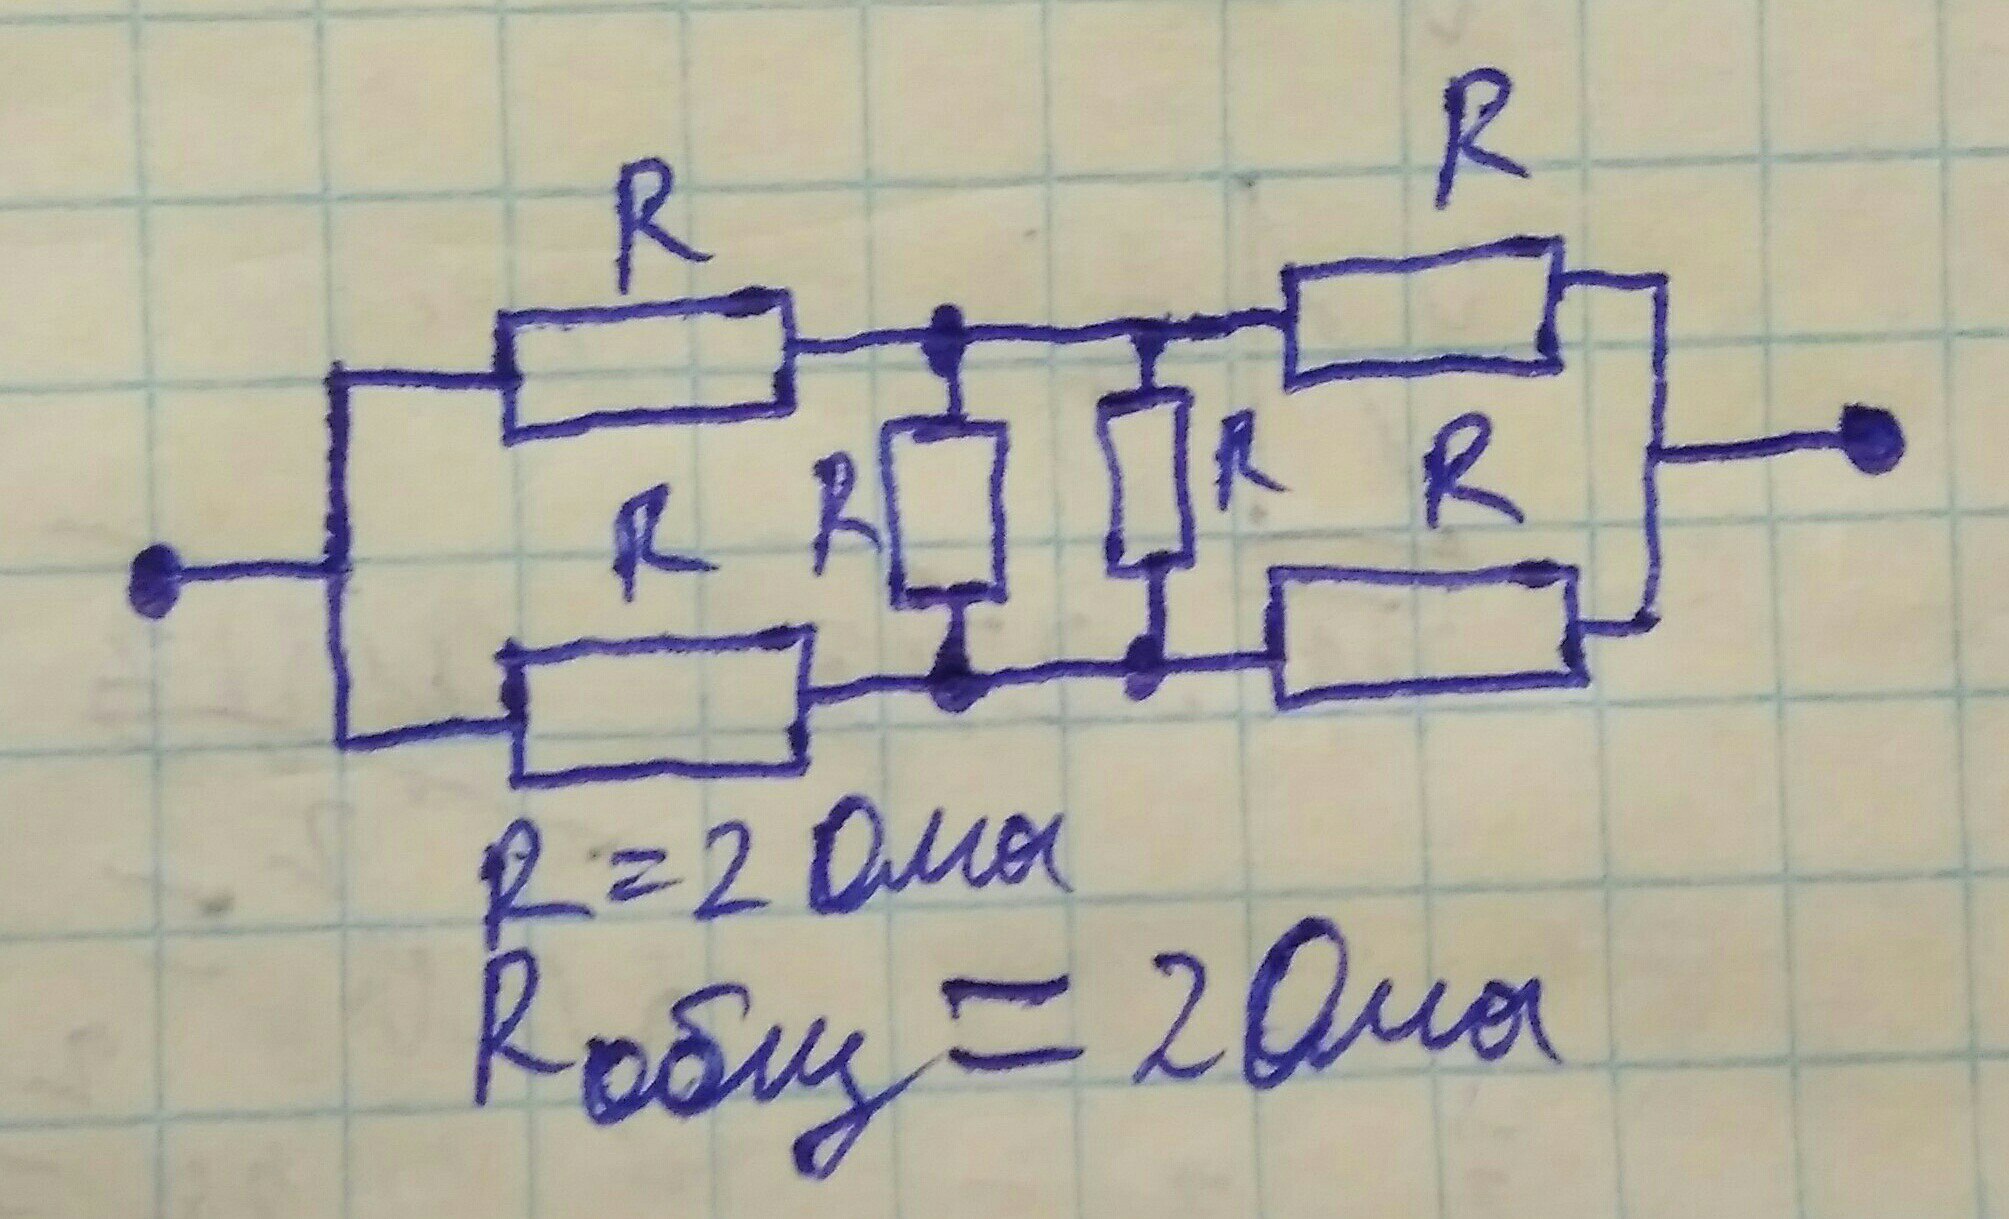 R
R
R
R
R
R
R = 2 Ома
Rобщ = 2 Ома